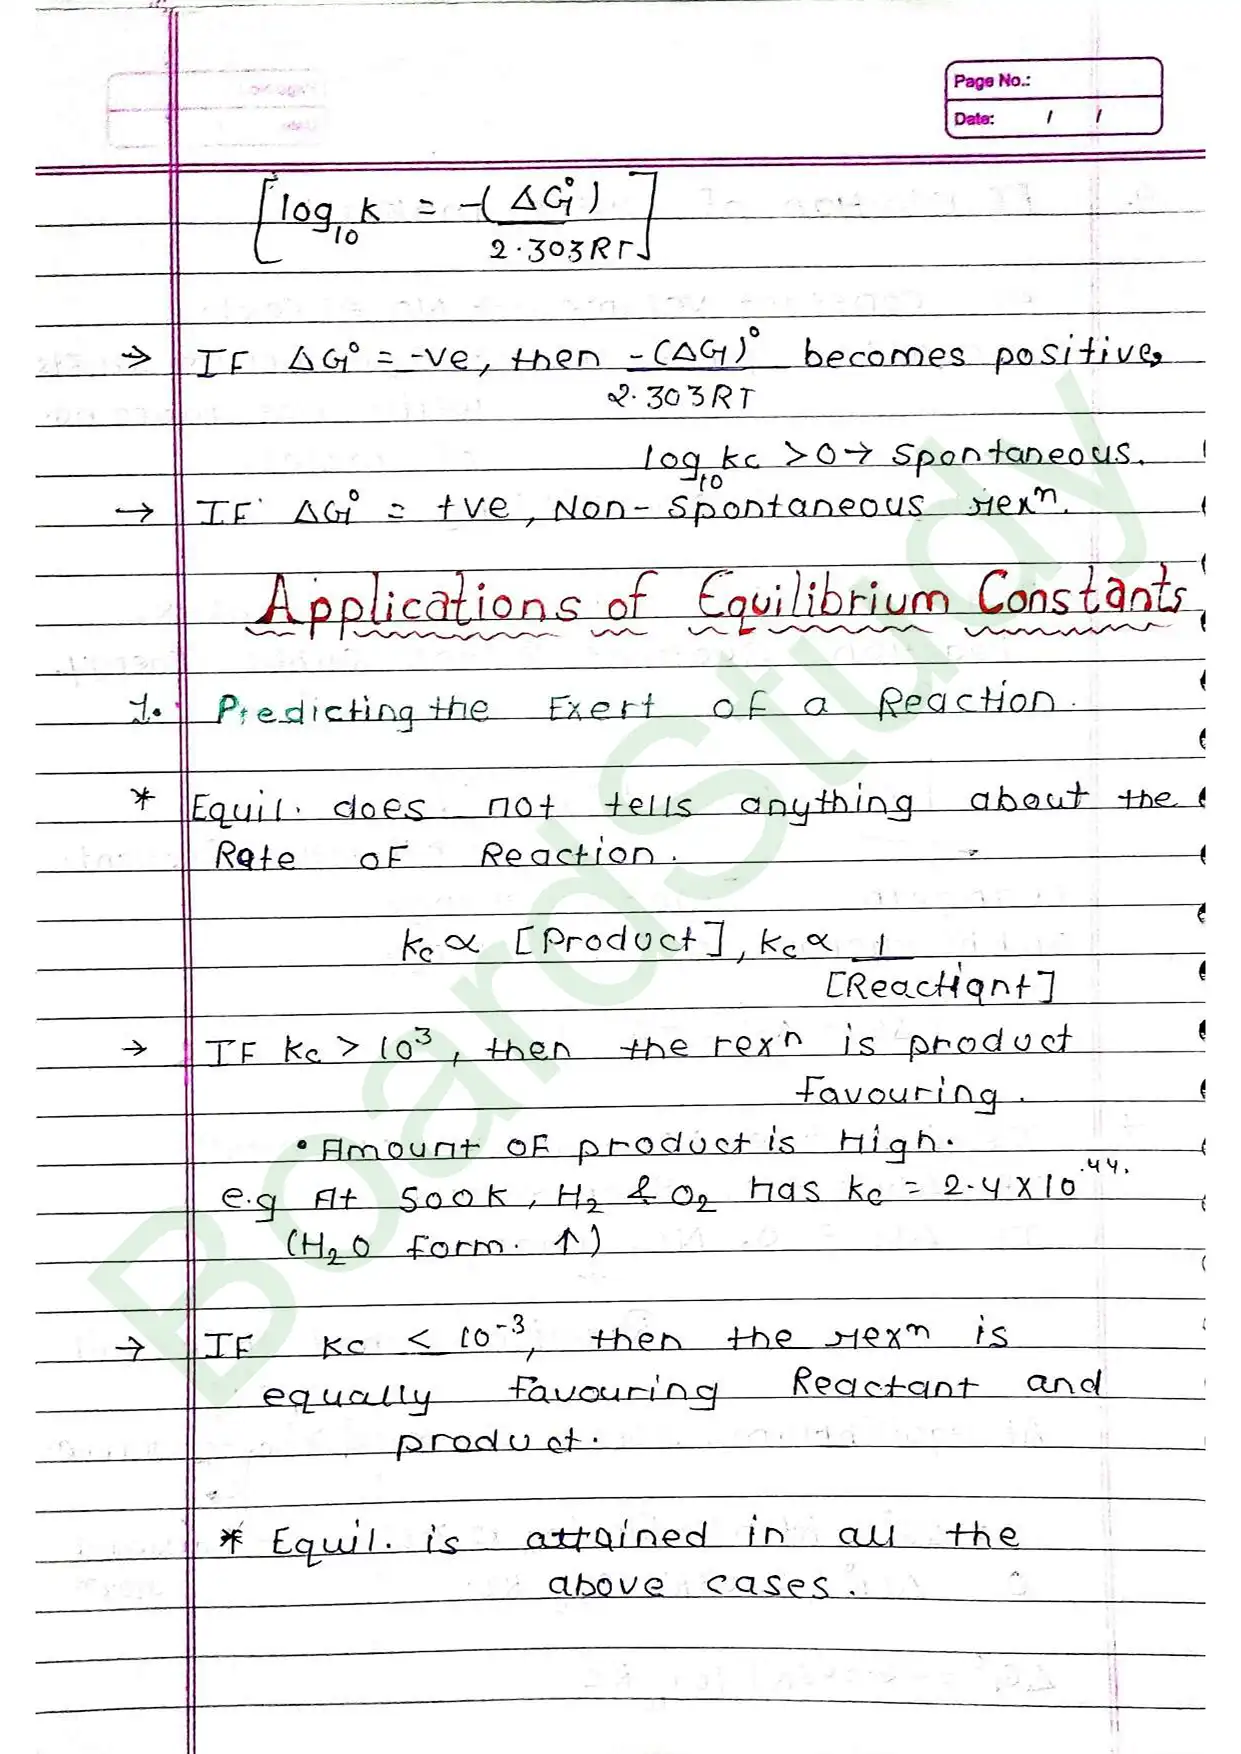 Page No.:
Date: / /
[log₁₀ K = -(ΔG°) / 2.303RT]
→ IF ΔG° = -ve, then -(ΔG)° / 2.303RT becomes positive,
log₁₀ Kc > 0 → spontaneous.
→ IF ΔG° = +ve, Non-spontaneous rexⁿ.
Applications of Equilibrium Constants
1. Predicting the Exert of a Reaction.
* Equil. does not tells anything about the
Rate of Reaction.
Kc ∝ [Product], Kc ∝ 1 / [Reactiant]
→ IF Kc > 10³, then the rexⁿ is product
favouring.
• Amount of product is High.
e.g At 500K, H₂ & O₂ has Kc = 2.4 × 10⁴⁴.
(H₂O form. ↑)
→ IF Kc < 10⁻³, then the rexⁿ is
equally favouring Reactant and
product.
* Equil. is attained in all the
above cases.
BoardStudy